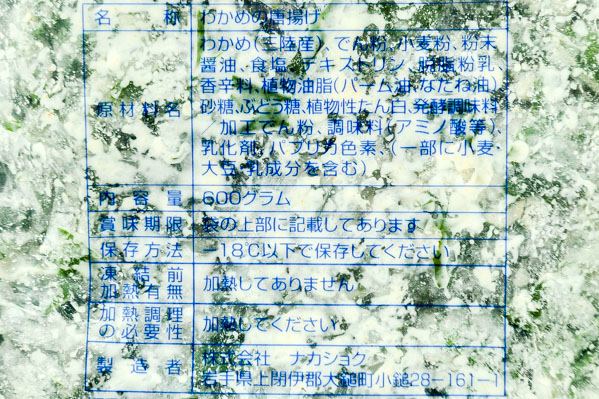 名称 わかめの唐揚げ
原材料名 わかめ(三陸産)、でん粉、小麦粉、粉末
醤油、食塩、デキストリン、脱脂粉乳、
香辛料、植物油脂(パーム油、なたね油)
砂糖、ぶどう糖、植物性たん白、発酵調味料
/加工でん粉、調味料(アミノ酸等)、
乳化剤、パプリカ色素、(一部に小麦・
大豆・乳成分を含む)
内容量 600グラム
賞味期限 袋の上部に記載してあります
保存方法 -18℃以下で保存してください
凍結前
加熱有無 加熱してありません
加熱調理
の必要性 加熱してください
製造者 株式会社 ナカショク
岩手県上閉伊郡大槌町小鎚28-161-1